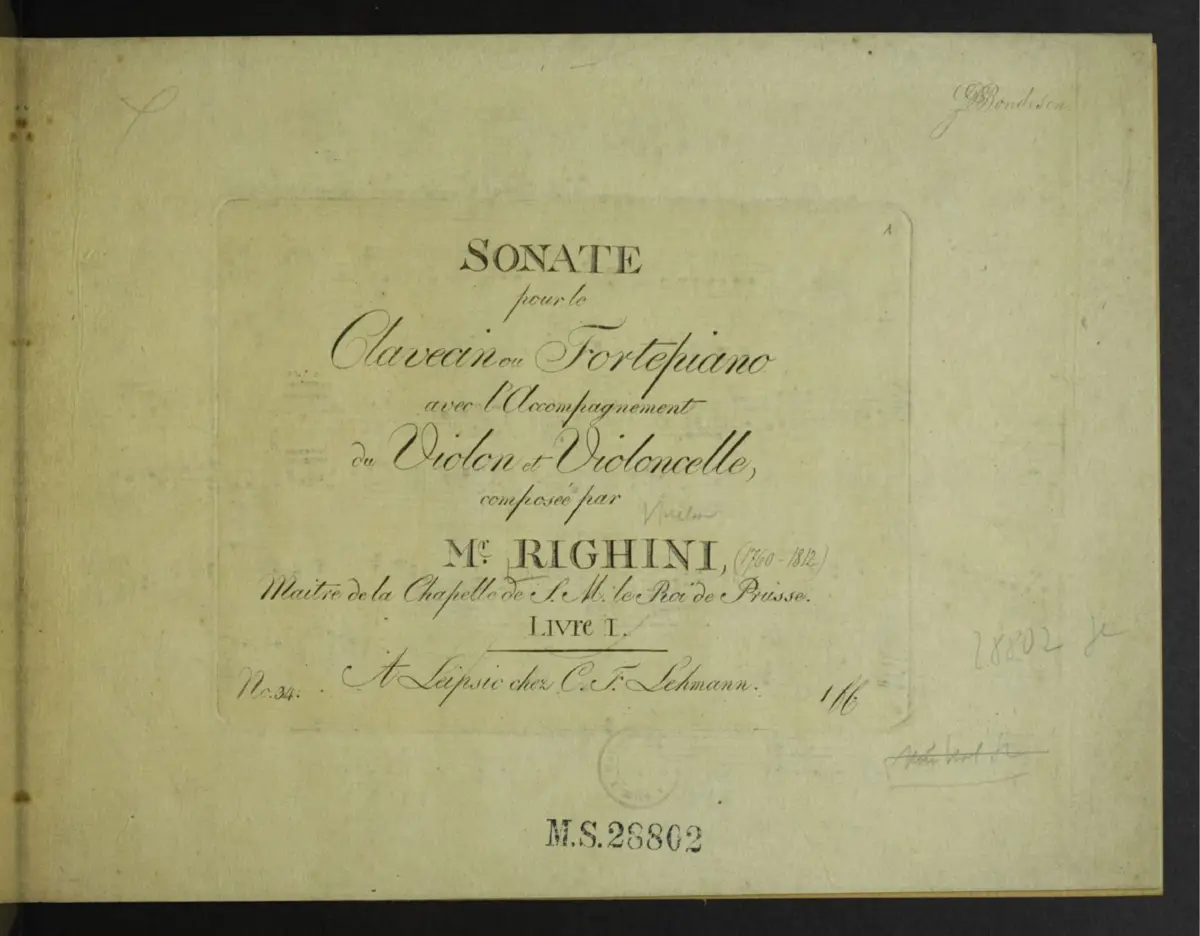 SONATE
pour le
Clavecin ou Fortepiano
avec l'Accompagnement
du Violon et Violoncelle,
composée par
Mr. RIGHINI, (1760-1812)
Maitre de la Chapelle de S. M. le Roi de Prusse.
LIVre I.
No. 34. A Leipsic chez C. F. Lehmann.
28802
M.S. 28802